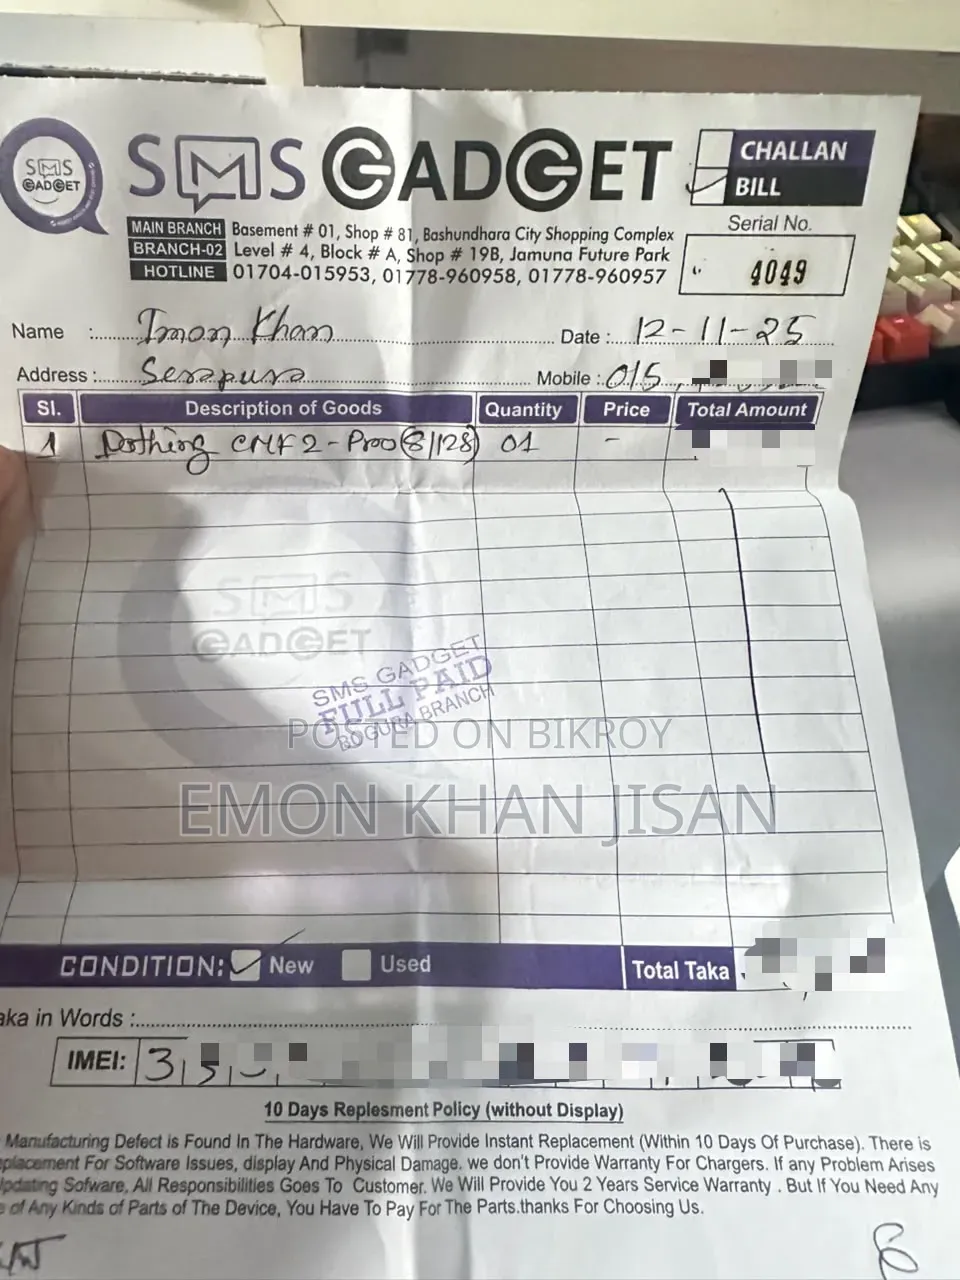 SMS GADGET
SMS GADGET
CHALLAN
BILL
MAIN BRANCH Basement # 01, Shop # 81, Bashundhara City Shopping Complex
BRANCH-02 Level # 4, Block # A, Shop # 19B, Jamuna Future Park
HOTLINE 01704-015953, 01778-960958, 01778-960957
Serial No.
4049
Name : Imon Khan Date : 12-11-25
Address : Serapura Mobile : 015
Sl. Description of Goods Quantity Price Total Amount
1 Nothing CMF 2-Pro (8/128) 01 -
SMS GADGET
SMS GADGET
FULL PAID
BOGURA BRANCH
POSTED ON BIKROY
EMON KHAN JISAN
CONDITION: New Used Total Taka
aka in Words :
IMEI: 35
10 Days Replesment Policy (without Display)
Manufacturing Defect is Found In The Hardware, We Will Provide Instant Replacement (Within 10 Days Of Purchase). There is
placement For Software Issues, display And Physical Damage. we don't Provide Warranty For Chargers. If any Problem Arises
Updating Sofware, All Responsibilities Goes To Customer. We Will Provide You 2 Years Service Warranty . But If You Need Any
e of Any Kinds of Parts of The Device, You Have To Pay For The Parts.thanks For Choosing Us.